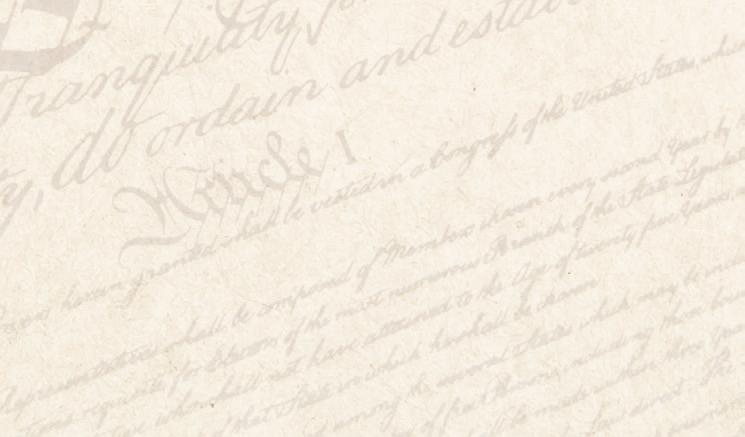 Tranquility, 
do ordain and establ
Article I
herein granted shall be vested in a Congress of the United States, which
Representatives shall be composed of Members chosen every second Year by
requisite for Electors of the most numerous Branch of the State Legislat
who shall not have attained to the Age of twenty five Years,
of that State in which he shall be chosen
among the several States which may be
of free Persons, including those
made within three Years